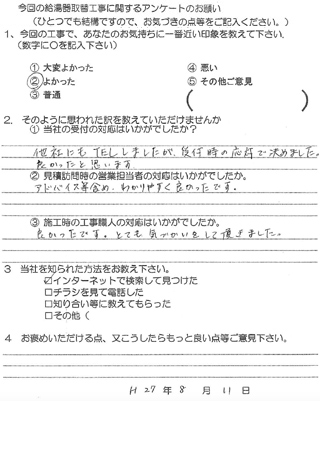 今回の給湯器取替工事に関するアンケートのお願い
(ひとつでも結構ですので、お気づきの点等をご記入ください。)
1、今回の工事で、あなたのお気持ちに一番近い印象を教えて下さい。
(数字に○を記入下さい)
① 大変よかった ④ 悪い
② よかった ⑤ その他ご意見
③ 普通 ( )
2. そのように思われた訳を教えていただけませんか
① 当社の受付の対応はいかがでしたか？
他社にもTELしましたが、受付時の応対で決めました。
良かったと思います
② 見積訪問時の営業担当者の対応はいかがでしたか。
アドバイス等含め、わかりやすく良かったです。
③ 施工時の工事職人の対応はいかがでしたか。
良かったです。とても気づかいをして頂きました。
3 当社を知られた方法をお教え下さい。
☑インターネットで検索して見つけた
□チラシを見て電話した
□知り合い等に教えてもらった
□その他（
4 お褒めいただける点、又こうしたらもっと良い点等ご意見下さい。
H 27 年 8 月 11 日